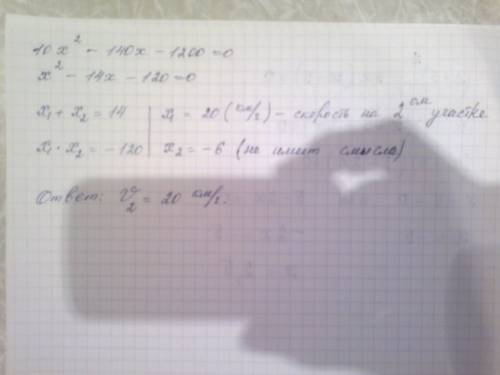 10x² - 140x - 1200 = 0
x² - 14x - 120 = 0
x₁ + x₂ = 14 | x₁ = 20 (км/г) - скорость на 2ом участке
x₁ · x₂ = -120 | x₂ = -6 (не имеит смысла)
Ответ: V₂ = 20 км/г.